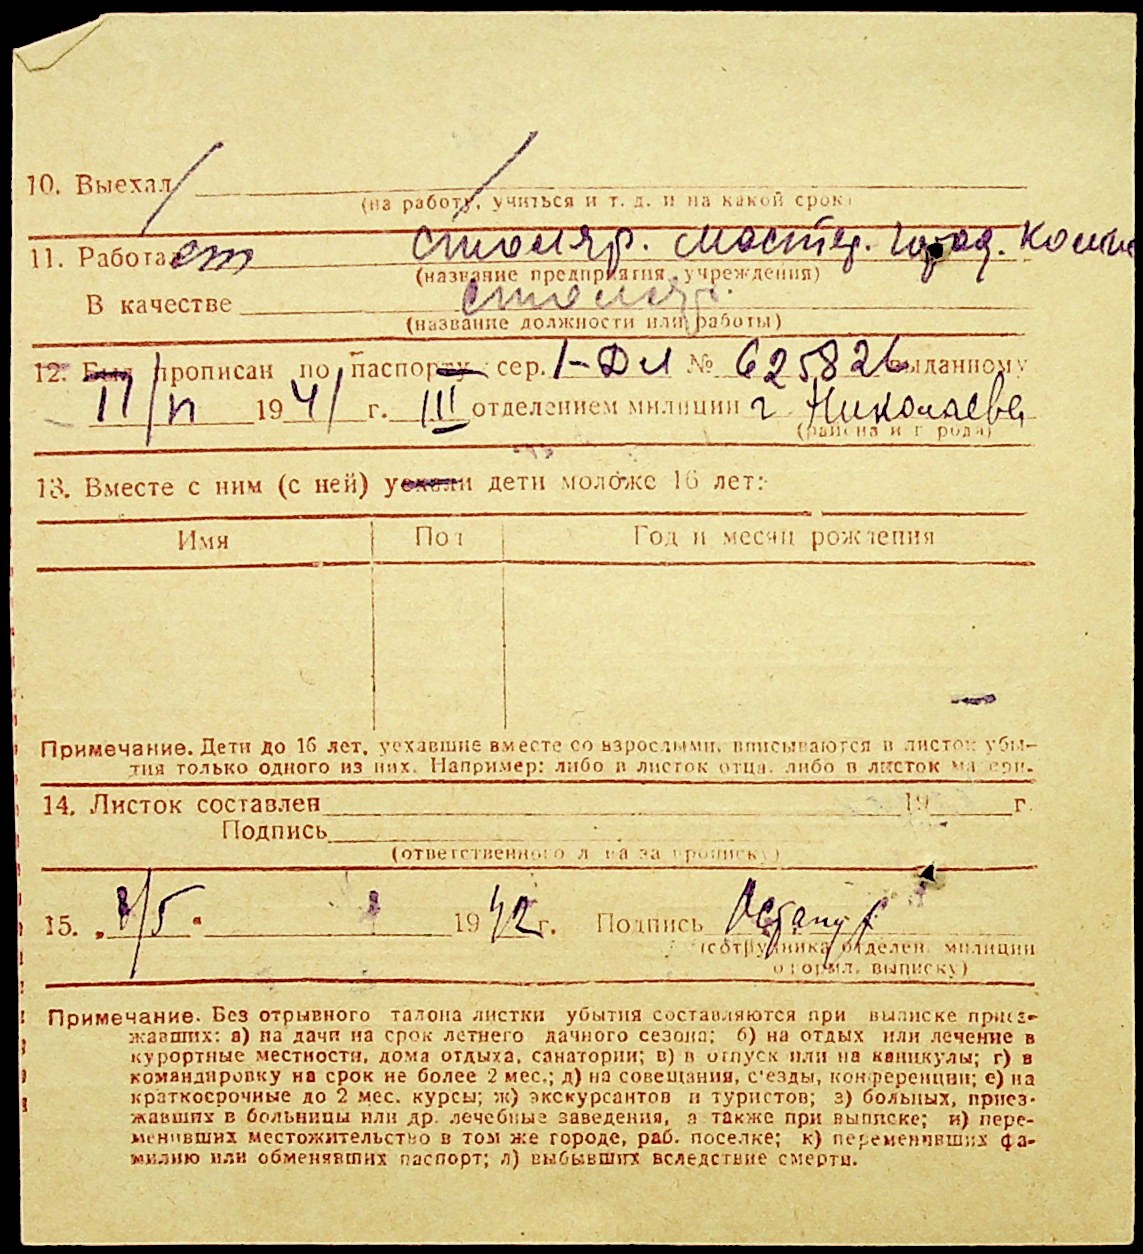 10. Выехал
(на работу, учиться и т. д. и на какой срок)
11. Работает столяр. мастер. город.
(название предприятия, учреждения)
В качестве столяр.
(название должности или работы)
12. Был прописан по паспорту сер. I-ДЛ № 625826 выданному
11/VI 1941 г. III отделением милиции г Николаева
(района и города)
13. Вместе с ним (с ней) уехали дети моложе 16 лет:
Имя Пол Год и месяц рождения
Примечание. Дети до 16 лет, уехавшие вместе со взрослыми, вписываются в листок убы-
тия только одного из них. Например: либо в листок отца, либо в листок матери.
14. Листок составлен 19 г.
Подпись
(ответственного лица за прописку)
15. „8/5" 1942 г. Подпись
(сотрудника отделен. милиции
оформл. выписку)
Примечание. Без отрывного талона листки убытия составляются при выписке приез-
жавших: а) на дачи на срок летнего дачного сезона; б) на отдых или лечение в
курортные местности, дома отдыха, санатории; в) в отпуск или на каникулы; г) в
командировку на срок не более 2 мес.; д) на совещания, с'езды, конференции; е) на
краткосрочные до 2 мес. курсы; ж) экскурсантов и туристов; з) больных, приез-
жавших в больницы или др. лечебные заведения, а также при выписке; и) пере-
менивших местожительство в том же городе, раб. поселке; к) переменивших фа-
милию или обменявших паспорт; л) выбывших вследствие смерти.